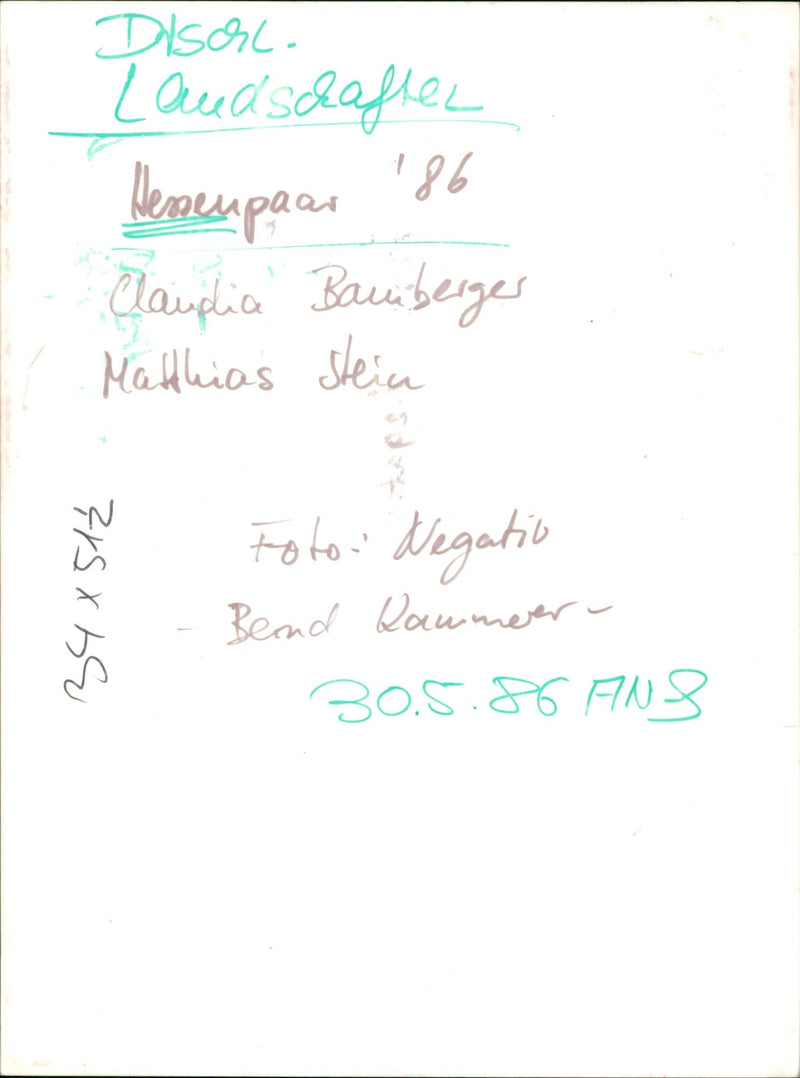 Dtschl.
Landschaften
Hessenpaar '86
Claudia Bamberger
Matthias Stein
Foto: Negativ
- Bernd Kammerer -
30.5.86 AN 8
34 x 51½